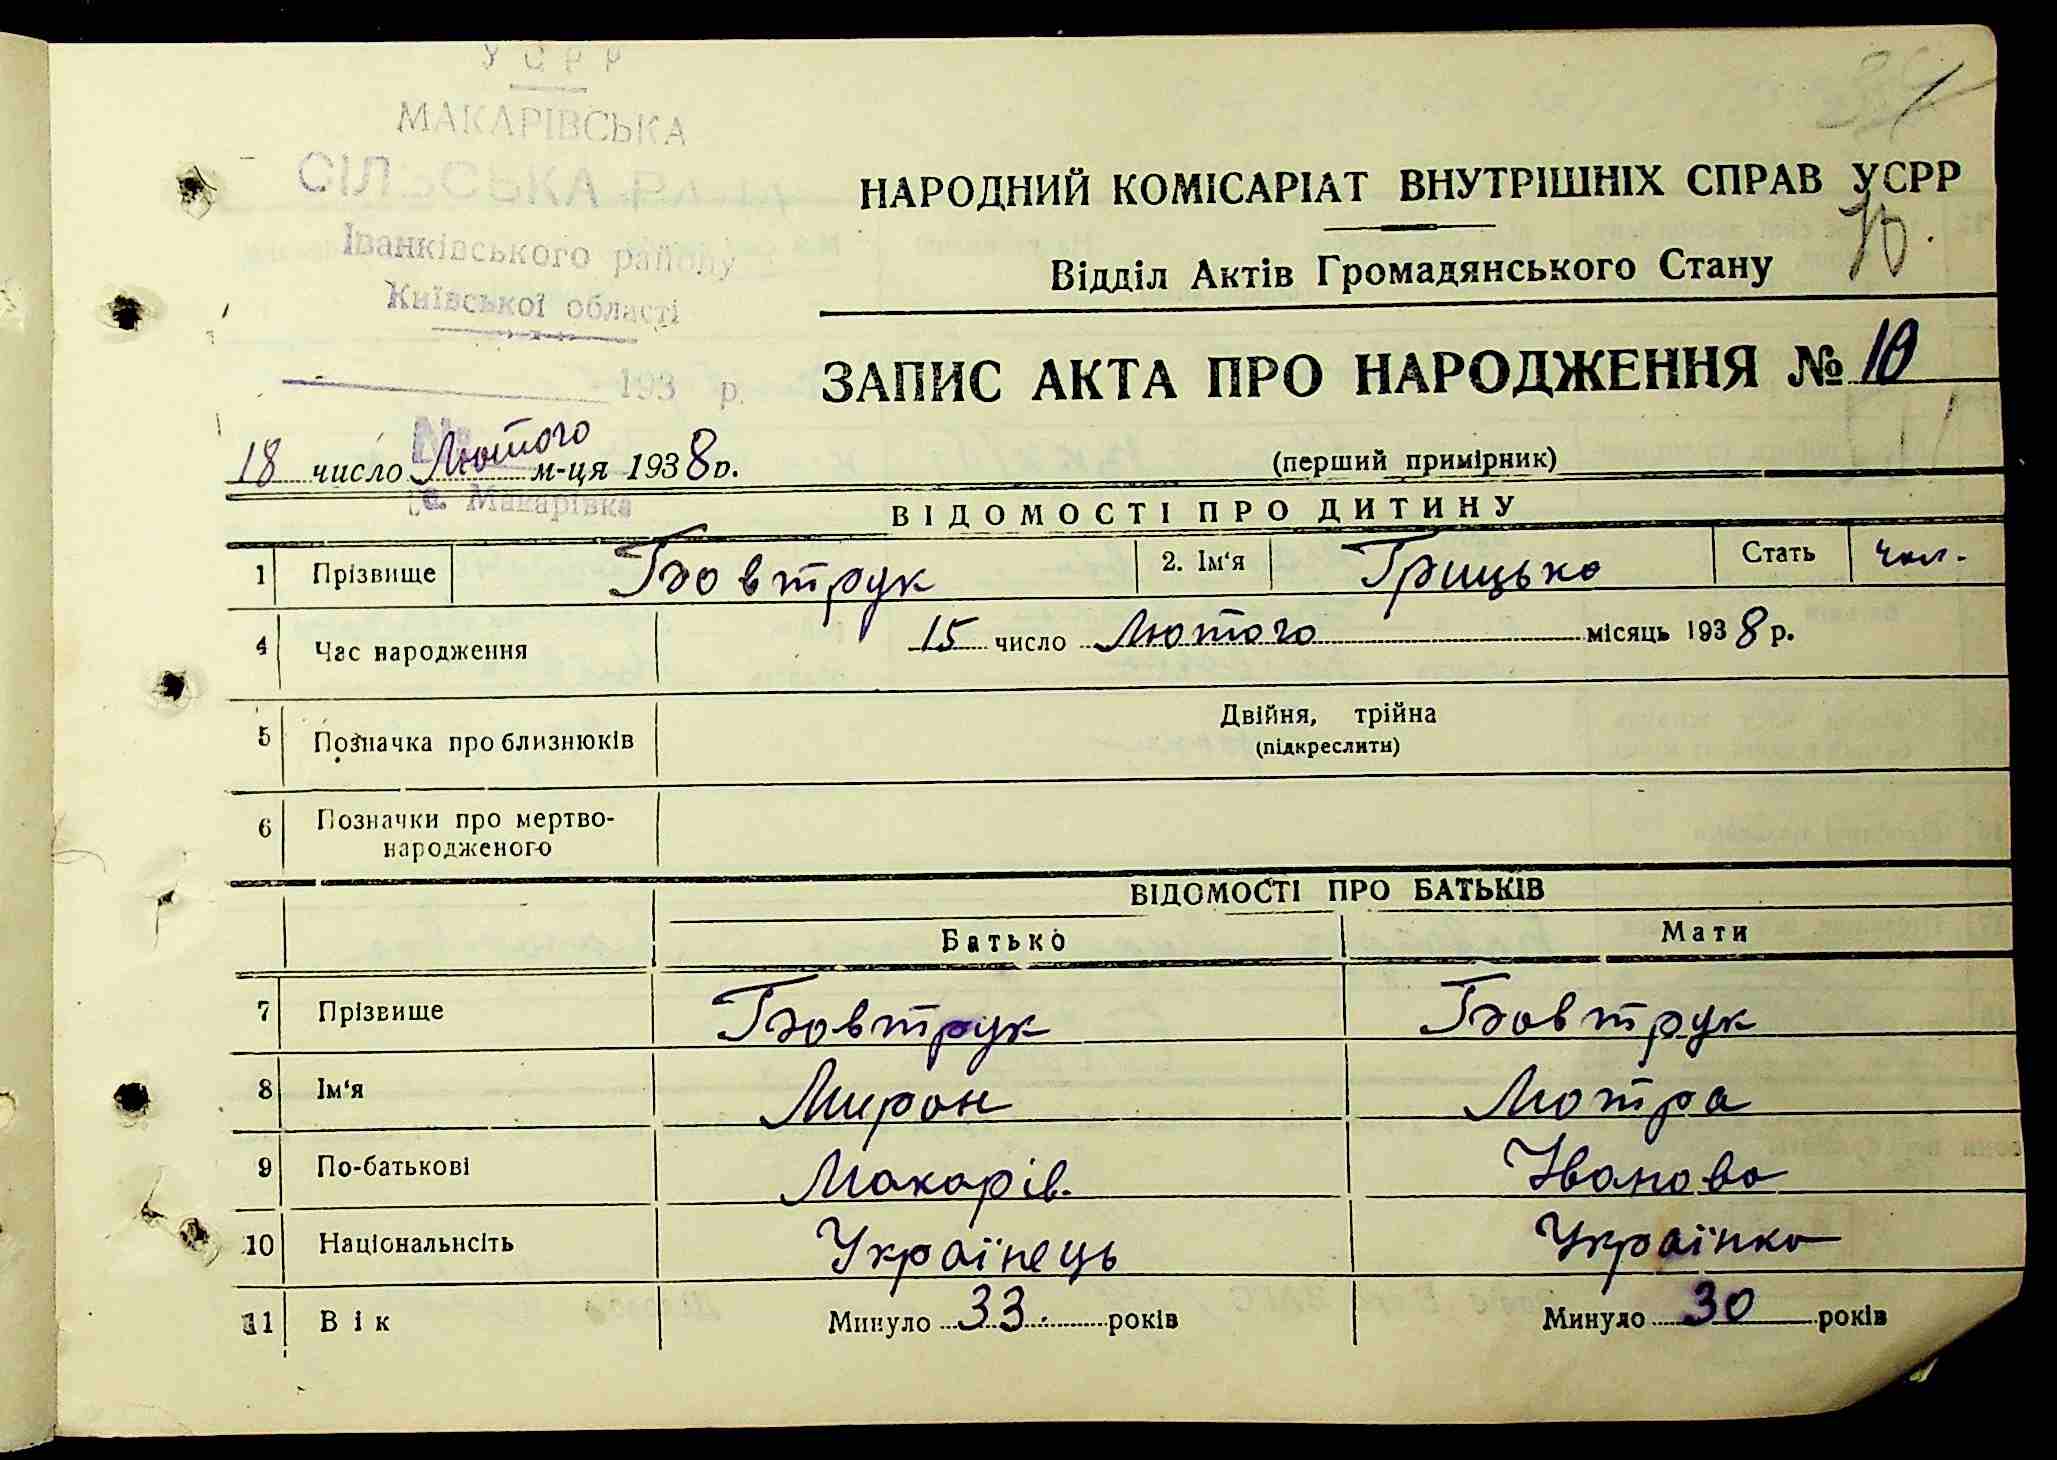 УСРР
МАКАРІВСЬКА
СІЛЬСЬКА РАДА
Іванківського району
Київської області
193 р.
№
с. Макарівка
НАРОДНИЙ КОМІСАРІАТ ВНУТРІШНІХ СПРАВ УСРР
10.
Відділ Актів Громадянського Стану
ЗАПИС АКТА ПРО НАРОДЖЕННЯ № 10
18 число Лютого м-ця 1938 р.
(перший примірник)
ВІДОМОСТІ ПРО ДИТИНУ
1 Прізвище Бовтрук 2. Ім‘я Грицько Стать чол.
4 Час народження 15 число Лютого місяць 1938 р.
5 Позначка про близнюків Двійня, трійна
(підкреслити)
6 Позначки про мертво-
народженого
ВІДОМОСТІ ПРО БАТЬКІВ
Батько Мати
7 Прізвище Бовтрук Бовтрук
8 Ім‘я Мирон Мотра
9 По-батькові Макарів. Іванова
10 Національнсіть Українець Українка
11 Вік Минуло 33 років Минуло 30 років